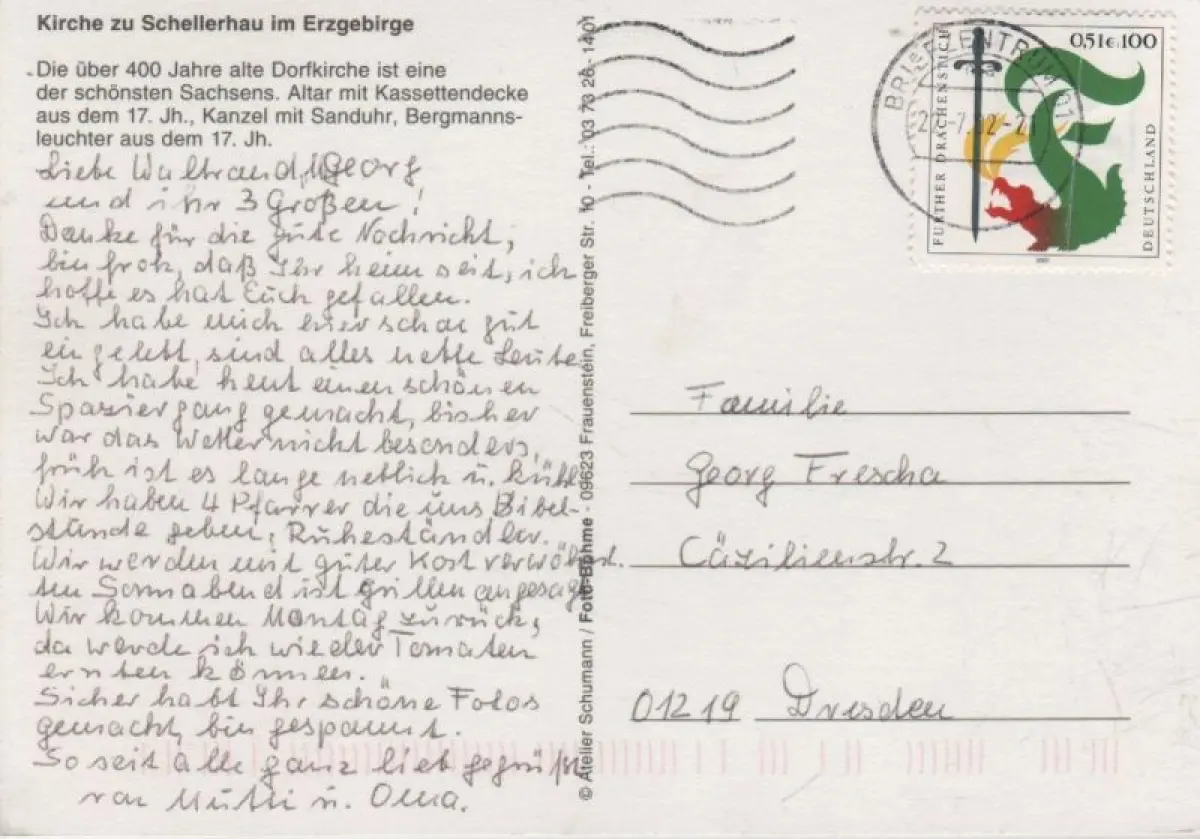 Kirche zu Schellerhau im Erzgebirge
Die über 400 Jahre alte Dorfkirche ist eine
der schönsten Sachsens. Altar mit Kassettendecke
aus dem 17. Jh., Kanzel mit Sanduhr, Bergmanns-
leuchter aus dem 17. Jh.
Liebe Waltraud, Georg
und ihr 3 Großen!
Danke für die gute Nachricht,
bin froh, daß Ihr heim seit, ich
hoffe es hat Euch gefallen.
Ich habe mich hier schon gut
eingelebt, sind alles nette Leute.
Ich habe heut einen schönen
Spaziergang gemacht, bisher
war das Wetter nicht besonders,
früh ist es lange neblich u. kühl.
Wir haben 4 Pfarrer die uns Bibel-
stunde geben, Ruheständler.
Wir werden mit guter Kost verwöhnt.
Sonnabend ist Grillen angesagt
Wir kommen Montag zurück,
da werde ich wieder Tomaten
ernten können.
Sicher habt Ihr schöne Fotos
gemacht, bin gespannt.
So seit alle ganz lieb gegrüßt
von Mutti u. Oma.
© Atelier Schumann / Foto-Böhme · 09623 Frauenstein, Freiberger Str. 10 - Tel.: 03 73 26 - 1401
BRIEFZENTRUM 01
0,51€ 100
FURTHER DRACHENSTICH
DEUTSCHLAND
Familie
Georg Frescha
Cäzilienstr. 2
01219 Dresden